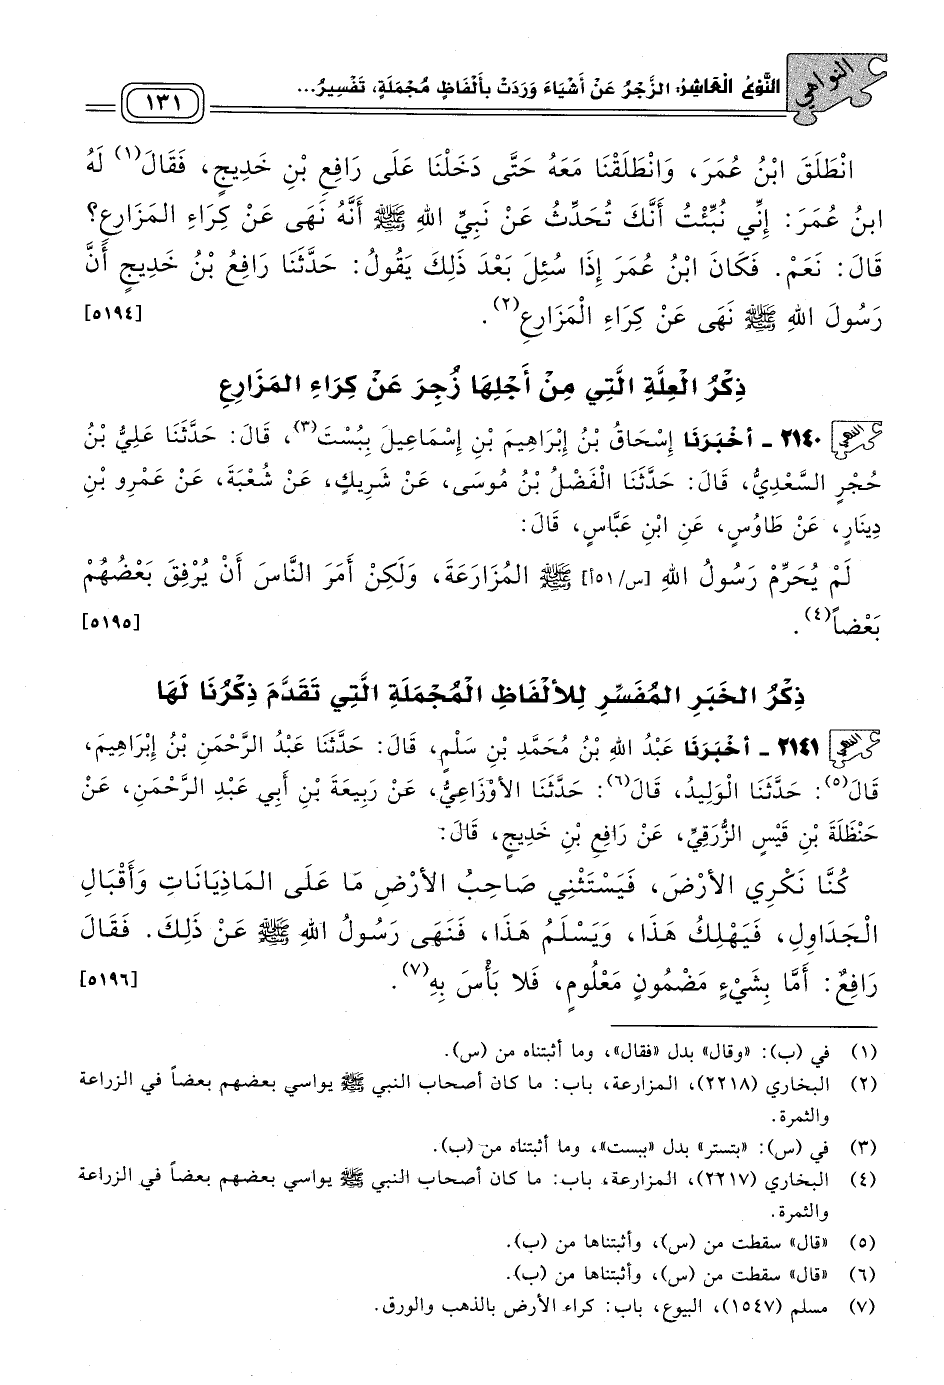 النواهي
النَّوْعُ الْعَاشِرُ: الزَّجْرُ عَنْ أَشْيَاءَ وَرَدَتْ بِأَلْفَاظٍ مُجْمَلَةٍ، تَفْسِيرُ...
١٣١
انْطَلَقَ ابْنُ عُمَرَ، وَانْطَلَقْنَا مَعَهُ حَتَّى دَخَلْنَا عَلَى رَافِعِ بْنِ خَدِيجٍ، فَقَالَ(١) لَهُ
ابنُ عُمَرَ: إِنِّي نُبِّئْتُ أَنَّكَ تُحَدِّثُ عَنْ نَبِيِّ اللهِ ﷺ أَنَّهُ نَهَى عَنْ كِرَاءِ المَزَارِعِ؟
قَالَ: نَعَمْ. فَكَانَ ابْنُ عُمَرَ إِذَا سُئِلَ بَعْدَ ذَلِكَ يَقُولُ: حَدَّثَنَا رَافِعُ بْنُ خَدِيجٍ أَنَّ
رَسُولَ اللهِ ﷺ نَهَى عَنْ كِرَاءِ الْمَزَارِعِ(٢). [٥١٩٤]
ذِكْرُ الْعِلَّةِ الَّتِي مِنْ أَجْلِهَا زُجِرَ عَنْ كِرَاءِ المَزَارِعِ
النهي ٢١٤٠ - أخْبَرَنَا إِسْحَاقُ بْنُ إِبْرَاهِيمَ بْنِ إِسْمَاعِيلَ بِبُسْتَ(٣)، قَالَ: حَدَّثَنَا عَلِيُّ بْنُ
حُجْرٍ السَّعْدِيُّ، قَالَ: حَدَّثَنَا الْفَضْلُ بْنُ مُوسَى، عَنْ شَرِيكٍ، عَنْ شُعْبَةَ، عَنْ عَمْرِو بْنِ
دِينَارٍ، عَنْ طَاوُسٍ، عَنِ ابْنِ عَبَّاسٍ، قَالَ:
لَمْ يُحَرِّمْ رَسُولُ اللهِ [س/٥١أ] ﷺ المُزَارَعَةَ، وَلَكِنْ أَمَرَ النَّاسَ أَنْ يُرْفِقَ بَعْضُهُمْ
بَعْضاً(٤). [٥١٩٥]
ذِكْرُ الخَبَرِ المُفَسِّرِ لِلأَلْفَاظِ الْمُجْمَلَةِ الَّتِي تَقَدَّمَ ذِكْرُنَا لَهَا
النهي ٢١٤١ - أخْبَرَنَا عَبْدُ اللهِ بْنُ مُحَمَّدِ بْنِ سَلْمٍ، قَالَ: حَدَّثَنَا عَبْدُ الرَّحْمَنِ بْنُ إِبْرَاهِيمَ،
قَالَ(٥): حَدَّثَنَا الْوَلِيدُ، قَالَ(٦): حَدَّثَنَا الأَوْزَاعِيُّ، عَنْ رَبِيعَةَ بْنِ أَبِي عَبْدِ الرَّحْمَنِ، عَنْ
حَنْظَلَةَ بْنِ قَيْسٍ الزُّرَقِيِّ، عَنْ رَافِعِ بْنِ خَدِيجٍ، قَالَ:
كُنَّا نَكْرِي الأَرْضَ، فَيَسْتَثْنِي صَاحِبُ الأَرْضِ مَا عَلَى المَاذِيَانَاتِ وَأَقْبَالِ
الْجَدَاوِلِ، فَيَهْلِكُ هَذَا، وَيَسْلَمُ هَذَا، فَنَهَى رَسُولُ اللهِ ﷺ عَنْ ذَلِكَ. فَقَالَ
رَافِعٌ: أَمَّا بِشَيْءٍ مَضْمُونٍ مَعْلُومٍ، فَلا بَأْسَ بِهِ(٧). [٥١٩٦]
(١) في (ب): «وقال» بدل «فقال»، وما أثبتناه من (س).
(٢) البخاري (٢٢١٨)، المزارعة، باب: ما كان أصحاب النبي ﷺ يواسي بعضهم بعضاً في الزراعة
والثمرة.
(٣) في (س): «بتستر» بدل «ببست»، وما أثبتناه من (ب).
(٤) البخاري (٢٢١٧)، المزارعة، باب: ما كان أصحاب النبي ﷺ يواسي بعضهم بعضاً في الزراعة
والثمرة.
(٥) «قال» سقطت من (س)، وأثبتناها من (ب).
(٦) «قال» سقطت من (س)، وأثبتناها من (ب).
(٧) مسلم (١٥٤٧)، البيوع، باب: كراء الأرض بالذهب والورق.